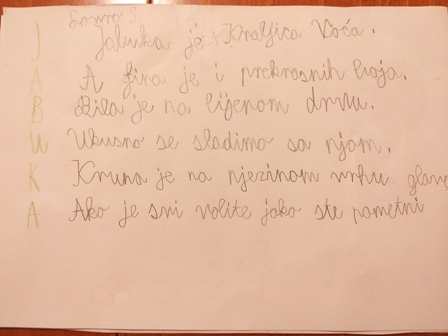 Lovro S.
J Jabuka je Kraljica Voća.
A A fina je i prekrasnih boja.
B Bila je na lijenom drvu.
U Ukusno se sladimo sa njom.
K Kruna je na njezinom vrhu glave
A Ako je svi volite jako ste pametni